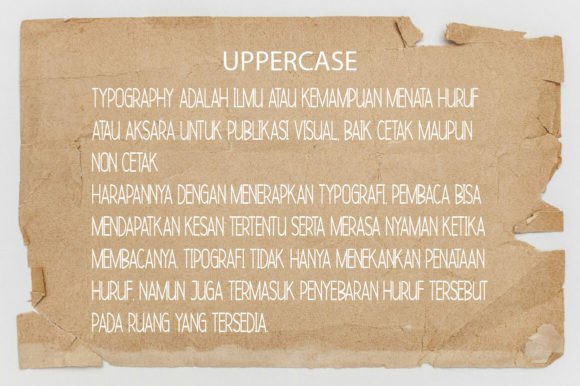 UPPERCASE
TYPOGRAPHY ADALAH ILMU ATAU KEMAMPUAN MENATA HURUF
ATAU AKSARA UNTUK PUBLIKASI VISUAL, BAIK CETAK MAUPUN
NON CETAK
HARAPANNYA DENGAN MENERAPKAN TYPOGRAFI, PEMBACA BISA
MENDAPATKAN KESAN TERTENTU SERTA MERASA NYAMAN KETIKA
MEMBACANYA. TIPOGRAFI TIDAK HANYA MENEKANKAN PENATAAN
HURUF, NAMUN JUGA TERMASUK PENYEBARAN HURUF TERSEBUT
PADA RUANG YANG TERSEDIA.